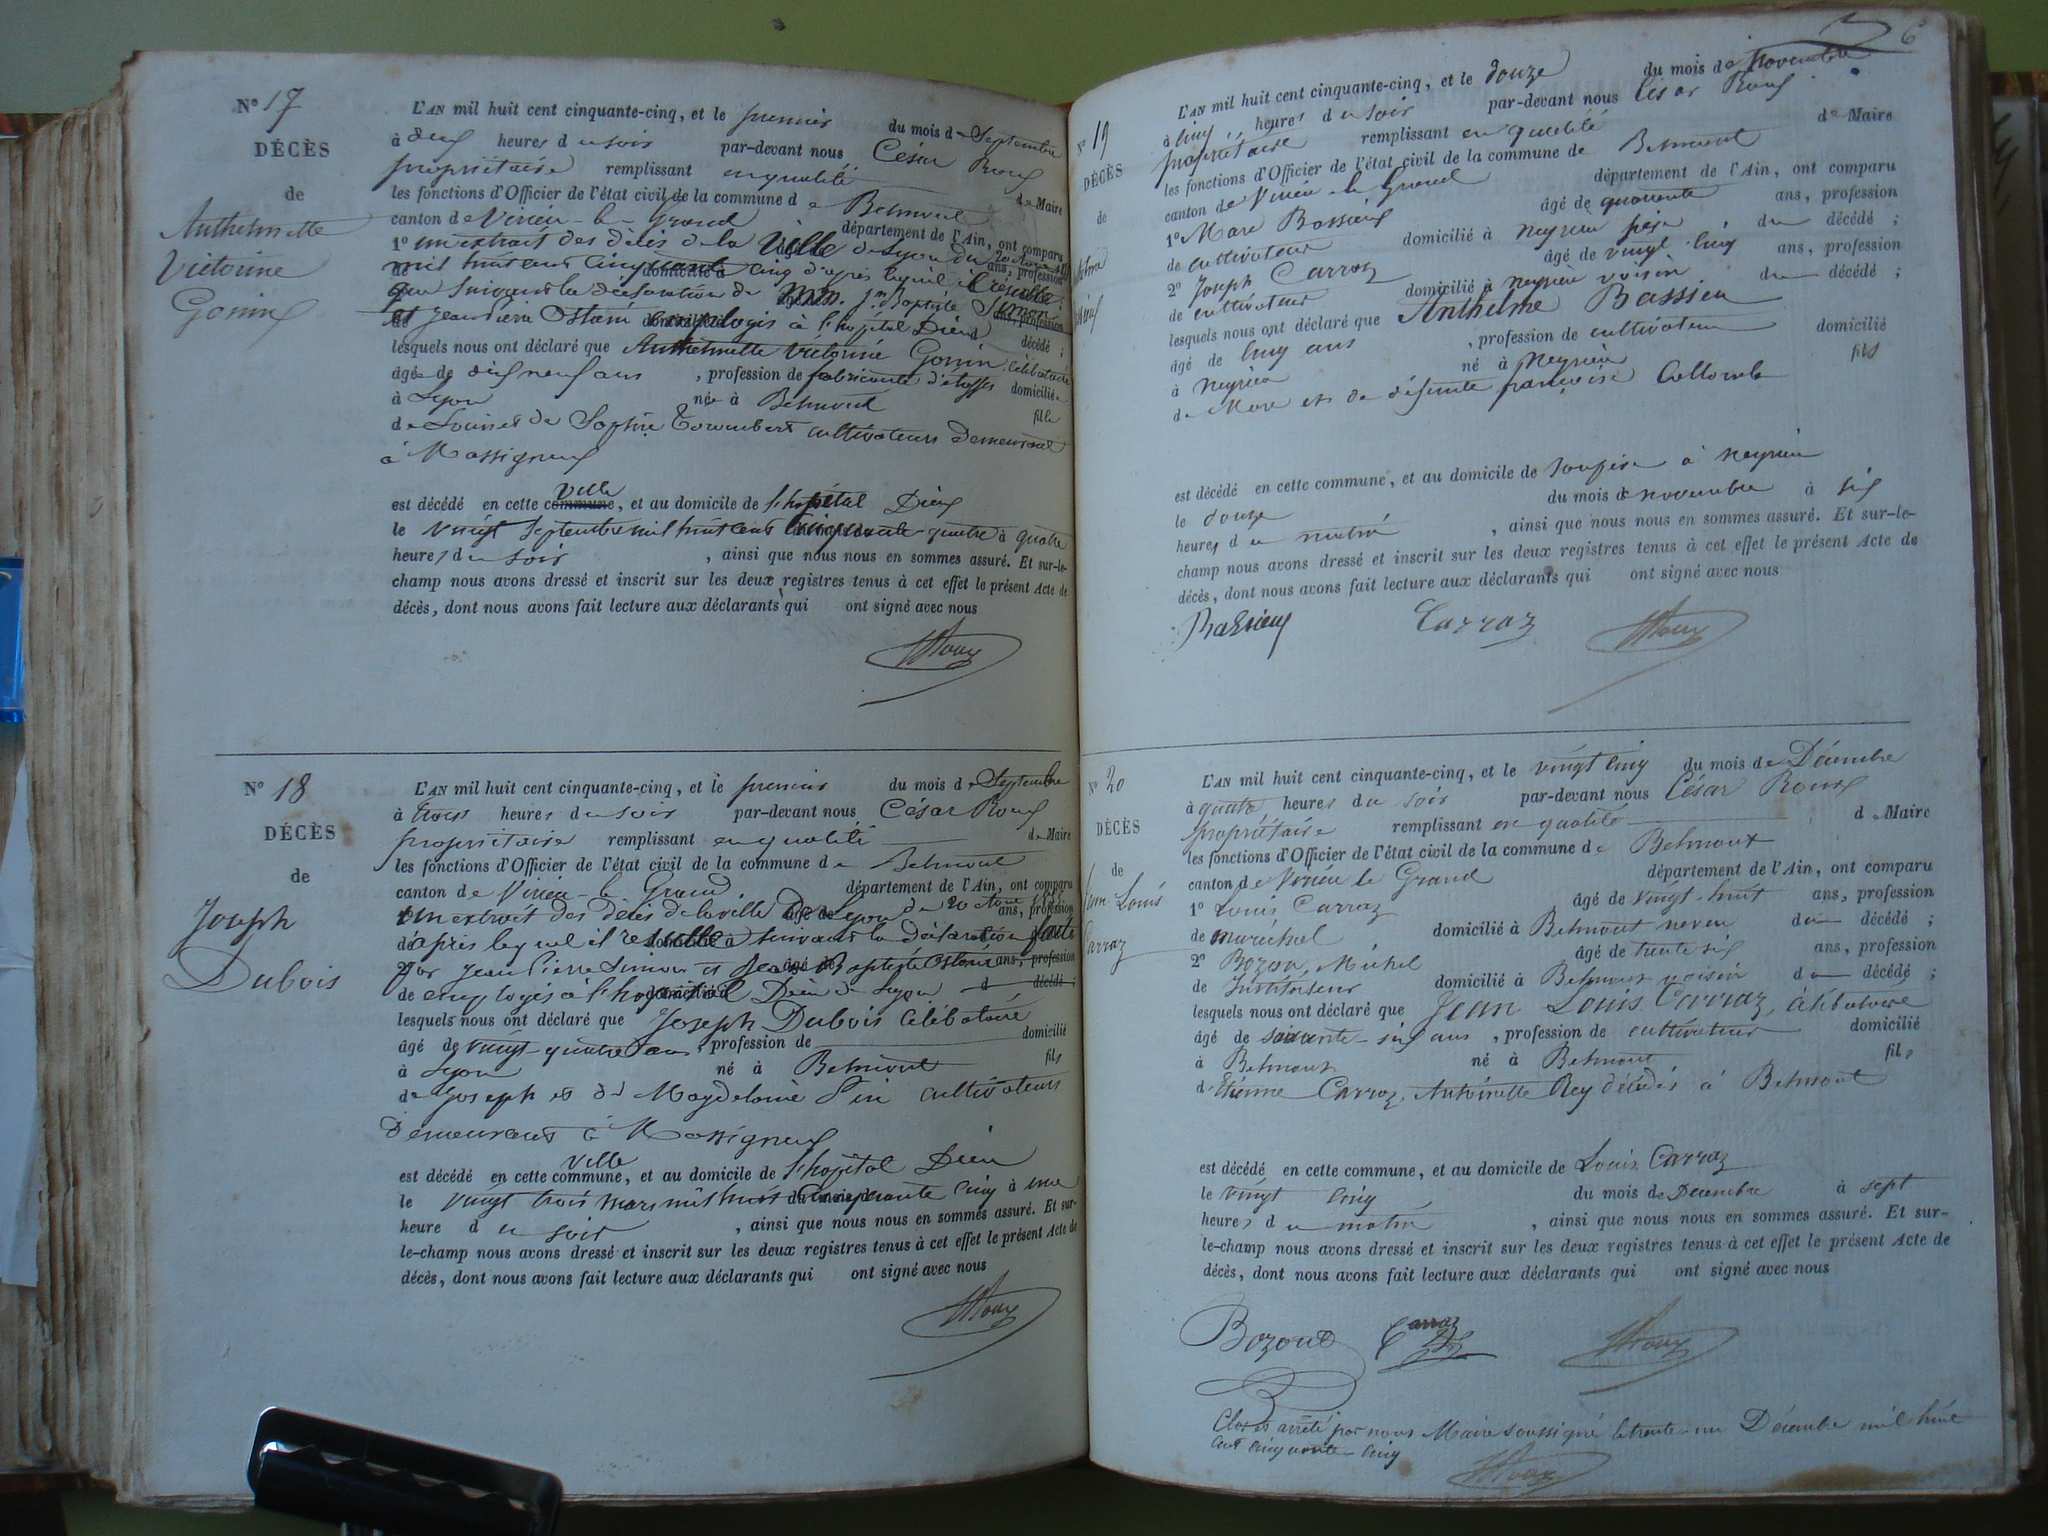 N° 17
DÉCÈS
de
Anthelmette
Victorine
Gonin
L'AN mil huit cent cinquante-cinq, et le premier du mois de Septembre
à deux heures du soir par-devant nous César Roux
propriétaire remplissant en qualité de Maire
les fonctions d'Officier de l'état civil de la commune de Belmont
canton de Virieu-le-Grand département de l'Ain, ont comparu
1° un extrait des décès de la ville de Lyon du 20 
mil huit cent cinquante cinq d'après lequel il résulte
que suivant la déclaration de MM. Jn Baptiste Simon
et Jean Pierre employés à l'hôpital Dieu décédé ;
lesquels nous ont déclaré que Anthelmette Victorine Gonin célibataire
âgée de dix neuf ans , profession de fabricante d'étoffes domiciliée
à Lyon née à Belmont fille
de Louis et de Sophie cultivateurs demeurant
à Massignieux
est décédé en cette commune ville, et au domicile de l'hôpital Dieu
le vingt Septembre mil huit cent cinquante-quatre à quatre
heures du soir , ainsi que nous nous en sommes assuré. Et sur-le-
champ nous avons dressé et inscrit sur les deux registres tenus à cet effet le présent Acte de
décès, dont nous avons fait lecture aux déclarants qui ont signé avec nous
Roux
N° 18
DÉCÈS
de
Joseph
Dubois
L'AN mil huit cent cinquante-cinq, et le premier du mois de Septembre
à trois heures du soir par-devant nous César Roux
propriétaire remplissant en qualité de Maire
les fonctions d'Officier de l'état civil de la commune de Belmont
canton de Virieu-le-Grand département de l'Ain, ont comparu
un extrait des décès de la ville de Lyon du 20
d'après lequel il résulte suivant la déclaration faite
par Jean Pierre Simon et Jean Baptiste
employés à l'hopital Dieu de Lyon décédé ;
lesquels nous ont déclaré que Joseph Dubois célibataire
âgé de vingt-quatre ans, profession de domicilié
à Lyon né à Belmont fils
de Joseph et de Magdelaine cultivateurs
demeurant à Massignieux
est décédé en cette commune ville, et au domicile de l'hôpital Dieu
le vingt trois mars mil huit cent cinquante cinq à une
heure du soir , ainsi que nous nous en sommes assuré. Et sur-
le-champ nous avons dressé et inscrit sur les deux registres tenus à cet effet le présent Acte de
décès, dont nous avons fait lecture aux déclarants qui ont signé avec nous
Roux
6
N° 19
DÉCÈS
de
L'AN mil huit cent cinquante-cinq, et le douze du mois de Novembre
à cinq heures du soir par-devant nous César Roux
propriétaire remplissant en qualité de Maire
les fonctions d'Officier de l'état civil de la commune de Belmont
canton de Virieu-le-Grand département de l'Ain, ont comparu
1° Marc Bassieux âgé de quarante ans, profession
de cultivateur domicilié à Neyrieu père du décédé ;
2° Joseph Carraz âgé de vingt-cinq ans, profession
de cultivateur domicilié à Neyrieu voisin du décédé ;
lesquels nous ont déclaré que Anthelme Bassieu
âgé de cinq ans , profession de cultivateur domicilié
à Neyrieu né à Neyrieu fils
de Marc et de défunte françoise Collomb
est décédé en cette commune, et au domicile de son père à Neyrieu
le douze du mois de novembre à six
heures du matin , ainsi que nous nous en sommes assuré. Et sur-le-
champ nous avons dressé et inscrit sur les deux registres tenus à cet effet le présent Acte de
décès, dont nous avons fait lecture aux déclarants qui ont signé avec nous
Bassieux Carraz Roux
N° 20
DÉCÈS
de
Jean Louis
Carraz
L'AN mil huit cent cinquante-cinq, et le vingt cinq du mois de Décembre
à quatre heures du soir par-devant nous César Roux
propriétaire remplissant en qualité de Maire
les fonctions d'Officier de l'état civil de la commune de Belmont
canton de Virieu le Grand département de l'Ain, ont comparu
1° Louis Carraz âgé de vingt-huit ans, profession
de maréchal domicilié à Belmont neveu du décédé ;
2° Bozon Michel âgé de trente six ans, profession
de Instituteur domicilié à Belmont voisin du décédé ;
lesquels nous ont déclaré que Jean Louis Carraz, célibataire
âgé de soixante-six ans , profession de cultivateur domicilié
à Belmont né à Belmont fils
d'Etienne Carraz, Antoinette Rey décédés à Belmont
est décédé en cette commune, et au domicile de Louis Carraz
le vingt cinq du mois de Décembre à sept
heures du matin , ainsi que nous nous en sommes assuré. Et sur-
le-champ nous avons dressé et inscrit sur les deux registres tenus à cet effet le présent Acte de
décès, dont nous avons fait lecture aux déclarants qui ont signé avec nous
Bozon Carraz Roux
Clos et arrêté par nous Maire soussigné le trente-un Décembre mil huit
cent cinquante-cinq
Roux